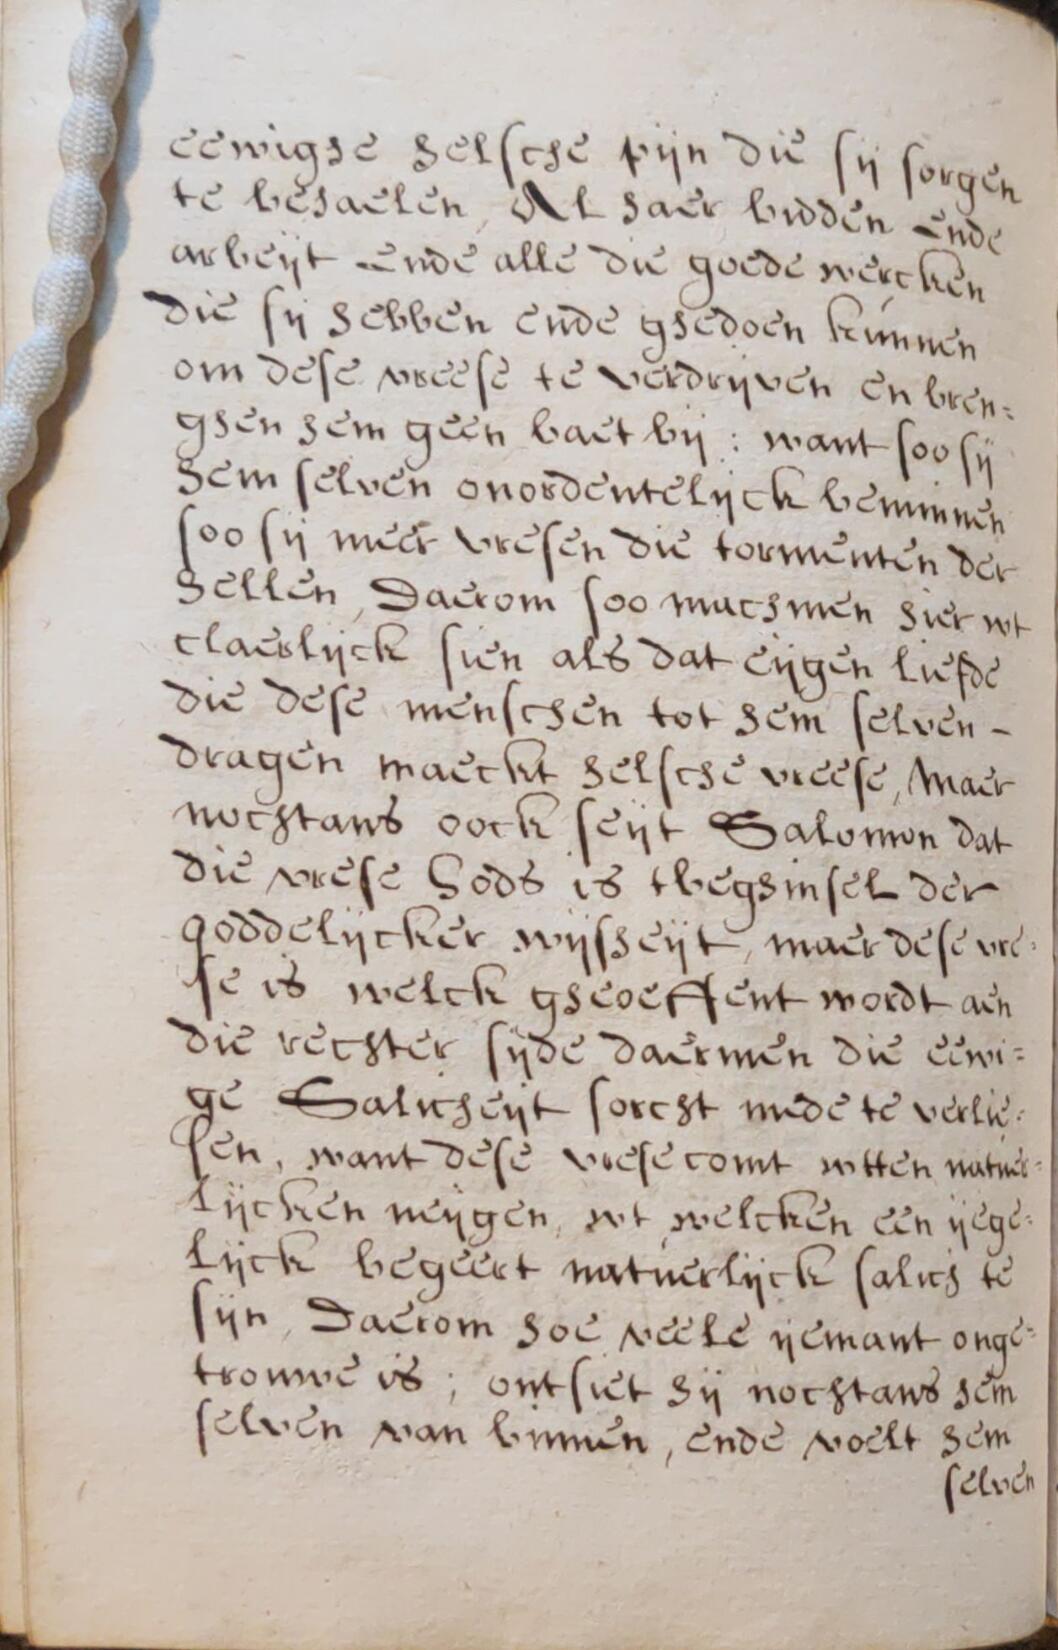 eewighe helsche pijn die sij sorgen
te behaelen, Al haer bidden ende
arbeijt ende alle die goede wercken
die sij hebben ende ghedoen kunnen
om dese vreese te verdrijven en bren=
ghen hem geen baet bij : want soo sij
hem selven onordentelijck beminnen
soo sij meer vresen die tormenten der
hellen, Daerom soo machmen hier wt
claerlijck sien als dat eijgen liefde
die dese menschen tot hem selven -
dragen maeckt helsche vreese, Maer
nochtans oock seijt Salomon dat
die vrese Gods is tbeghinsel der
goddelijcker wijsheijt, maer dese vre=
se is welck gheoeffent wordt aen
die rechter sijde daermen die eewi=
ge Salicheijt sorcht mede te verlie=
sen, want dese vrese comt wtten natuer=
lijcken neijgen, wt welcken een ijege=
lijck begeert natuerlijck salich te
sijn, Daerom hoe veele ijemant onge=
trouwe is ; ontsiet hij nochtans hem
selven van binnen, ende voelt hem
selven